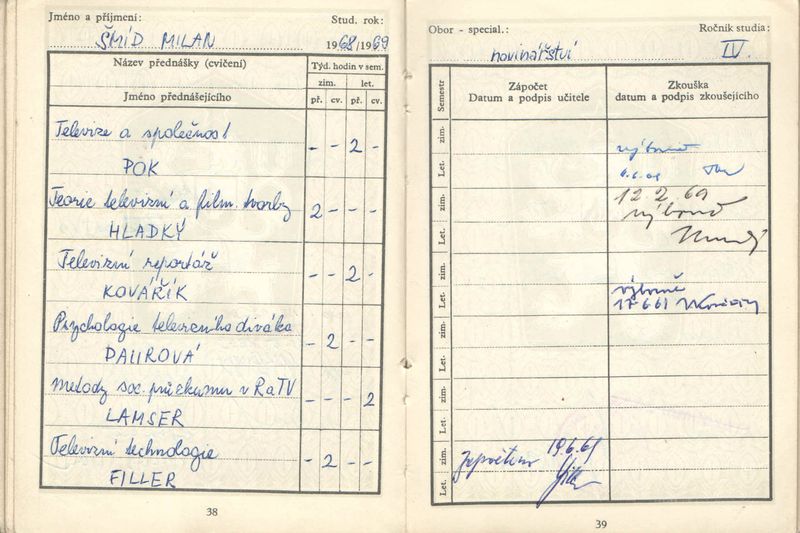 Jméno a příjmení: Stud. rok:
ŠMÍD MILAN 1968/1969
Název přednášky (cvičení) Týd. hodin v sem.
zim. let.
Jméno přednášejícího př. cv. př. cv.
Televize a společnost - - 2 -
POK
Teorie televizní a film. tvorby 2 - - -
HLADKÝ
Televizní reportáž - - 2 -
KOVÁŘÍK
Psychologie televizního diváka - 2 - -
Metody soc. průzkumu v RaTV - - - 2
LAMSER
Televizní technologie - 2 - -
FILLER
38
Obor - special.: Ročník studia:
novinářství IV.
Semestr Zápočet Zkouška
Datum a podpis učitele datum a podpis zkoušejícího
zim.
Let.
zim.
Let.
zim.
Let.
zim.
Let.
zim.
Let.
zim.
Let.
výborně
12 2 69
výborně
výborně
19.6.69
39